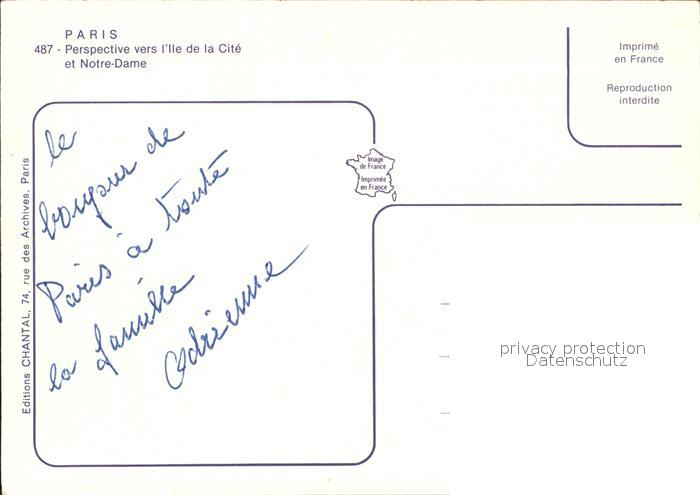 PARIS
487 - Perspective vers l'Ile de la Cité
et Notre-Dame
Imprimé
en France
Reproduction
interdite
Image
de France
Imprimée
en France
Editions CHANTAL, 74, rue des Archives, Paris
le
bonjour de
Paris à toute
la famille
Adrienne
privacy protection
Datenschutz